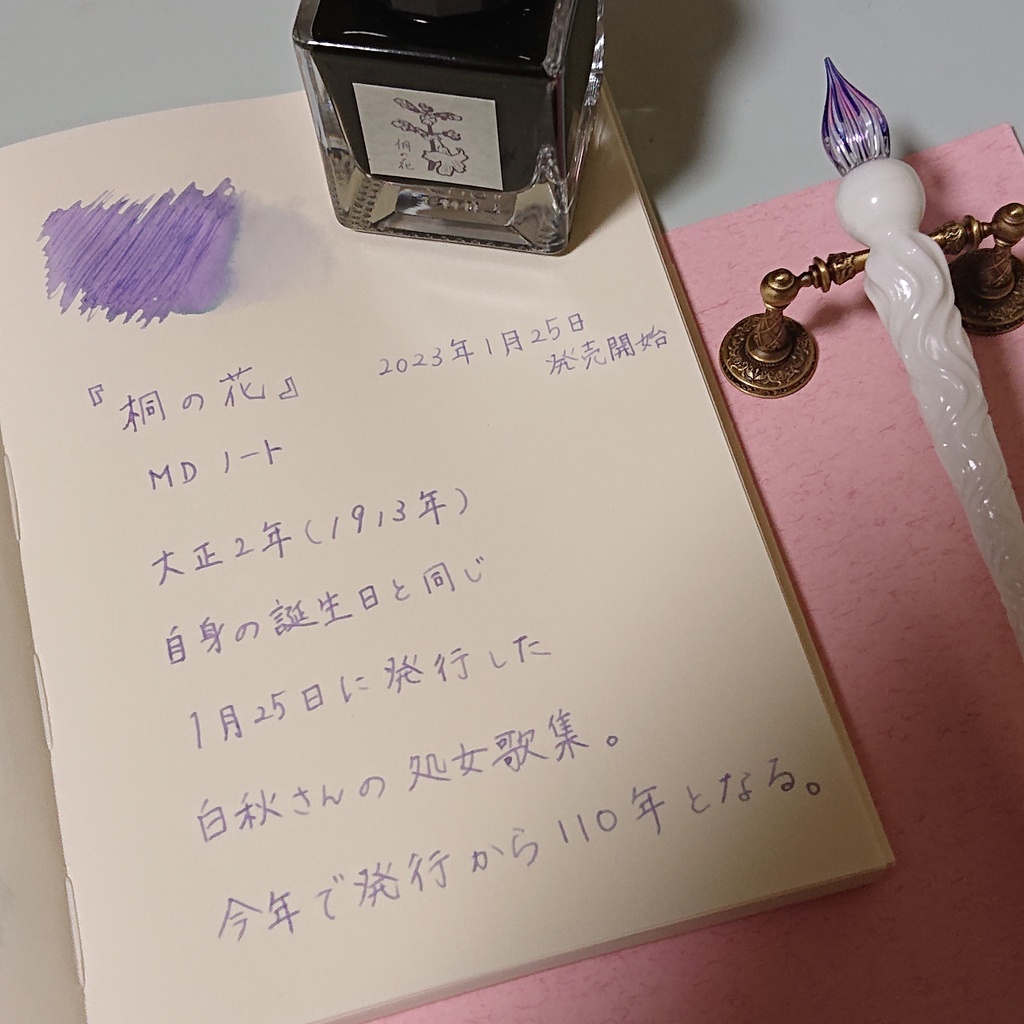 桐の花
2023年1月25日
発売開始
『桐の花』
MDノート
大正2年(1913年)
自身の誕生日と同じ
1月25日に発行した
白秋さんの処女歌集。
今年で発行から110年となる。